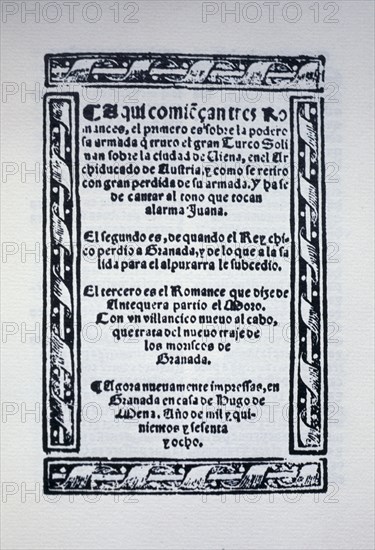 PHOTO 12 PHOTO 12 PHOTO 12
Aqui comiẽçan tres Ro
mances, el primero es sobre la podero
sa armada q̃ truxo el gran Turco Soli
man sobre la ciudad de Uiena, en el Ar
chiducado de Austria, y como se retiro
con gran perdida de su armada. Y ha se
de cantar al tono que tocan
alarma Juana.
El segundo es, de quando el Rey chi-
co perdio a Granada, y de lo que a la sa
lida para el alpuxarra le subcedio.
El tercero es el Romance que dize de
Antequera partio el Moro.
Con vn villancico nueuo al cabo,
que trata del nueuo traje de
los moriscos de
Granada.
Agora nueuamente impressas, en
Granada en casa de Hugo de
Mena. Año de mil y qui-
niemos y sesenta
y ocho.